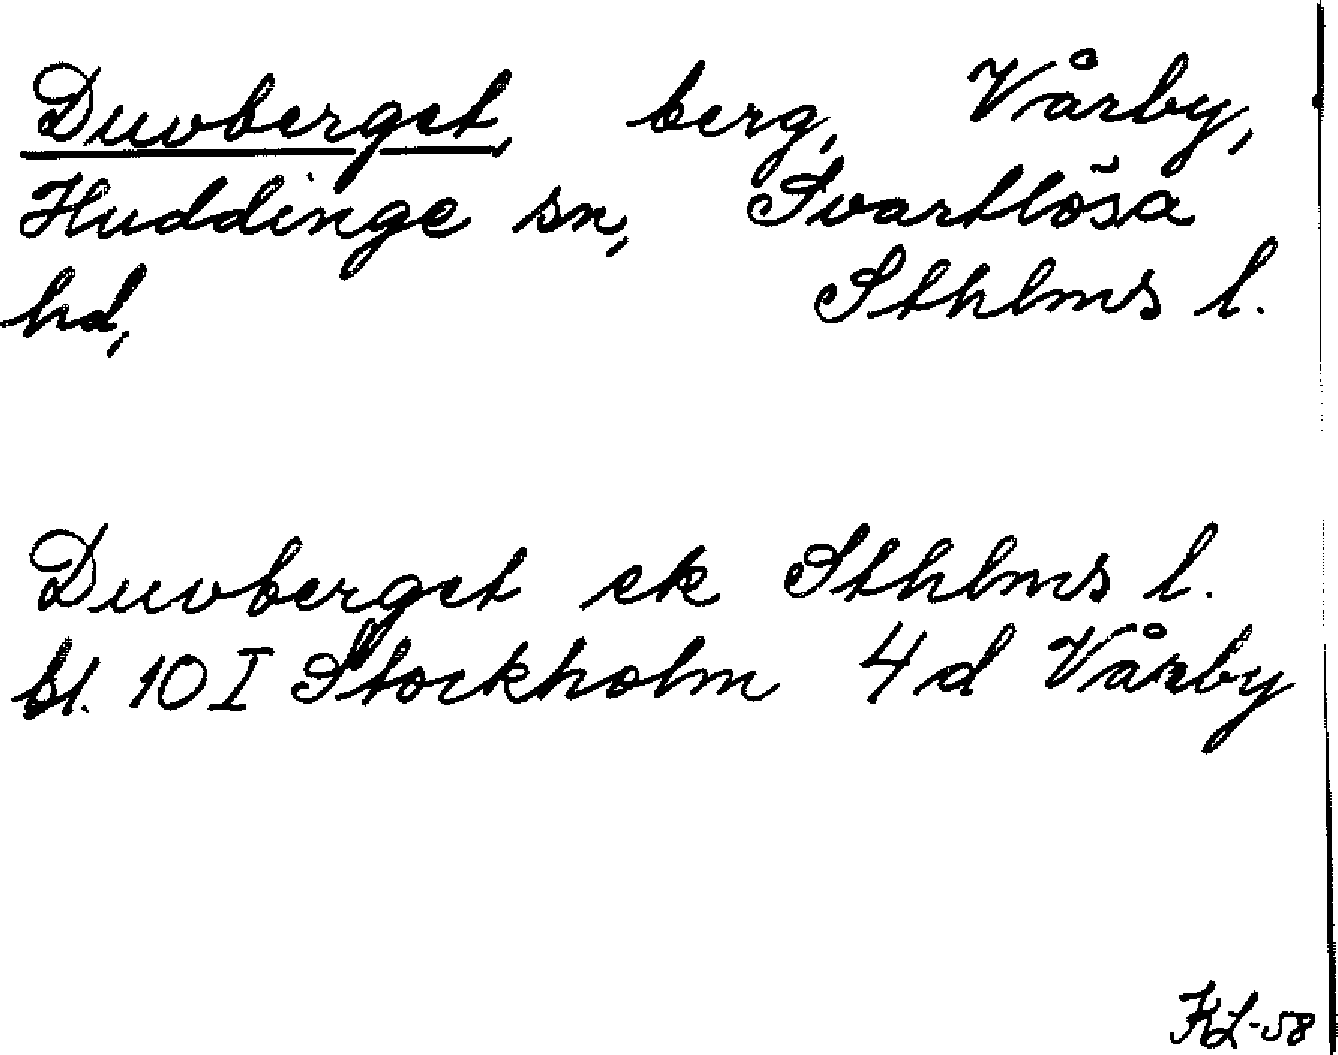 Duvberget, berg, Vårby,
Huddinge sn, Svartlösa
hd, Sthlms l.
Duvberget ek Sthlms l.
bl. 10 I Stockholm 4 d Vårby
KL-58